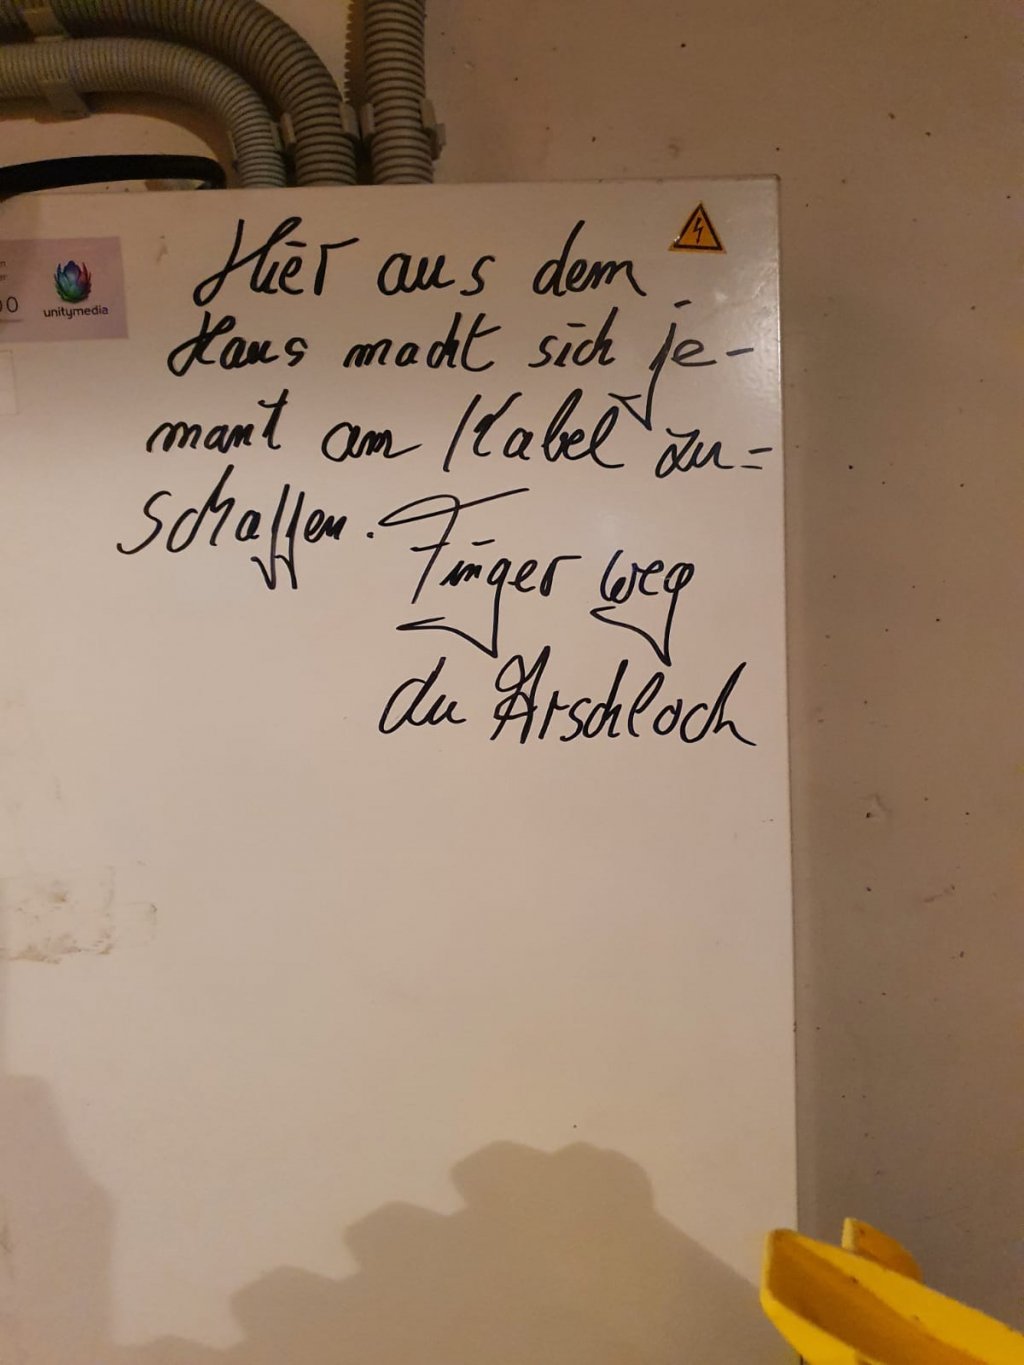 Hier aus dem
Haus macht sich je-
mant am Kabel zu=
schaffen. Finger weg
du Arschloch
unitymedia
00